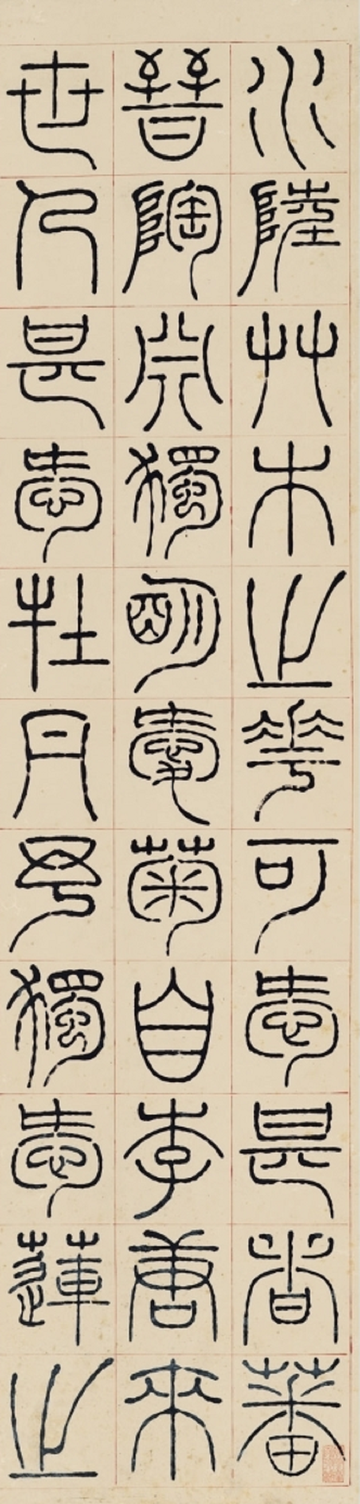 水陸艸木之華可愛甚者蕃
晉陶淵獨明愛菊自李唐來
世人甚愛牡丹予獨愛蓮之